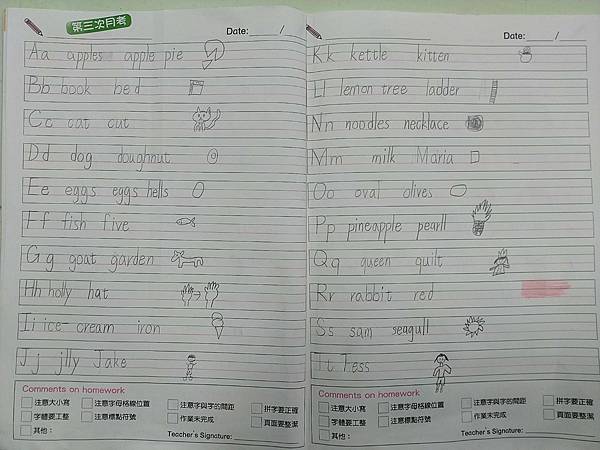 第三次月考
Date: /
Aa apples apple pie
Bb book bed
Cc cat cut
Dd dog doughnut
Ee eggs eggs hells
Ff fish five
Gg goat garden
Hh holly hat
Ii ice-cream iron
Jj jlly Jake
Comments on homework
注意大小寫
注意字母格線位置
注意字與字的間距
拼字要正確
字體要工整
注意標點符號
作業未完成
頁面要整潔
其他：
Teacher's Signature:
Date: /
Kk kettle kitten
Ll lemon tree ladder
Nn noodles necklace
Mm milk Maria
Oo oval olives
Pp pineapple pearll
Qq queen quilt
Rr rabbit red
Ss sam seagull
Tt Tess
Comments on homework
注意大小寫
注意字母格線位置
注意字與字的間距
拼字要正確
字體要工整
注意標點符號
作業未完成
頁面要整潔
其他：
Teacher's Signature: